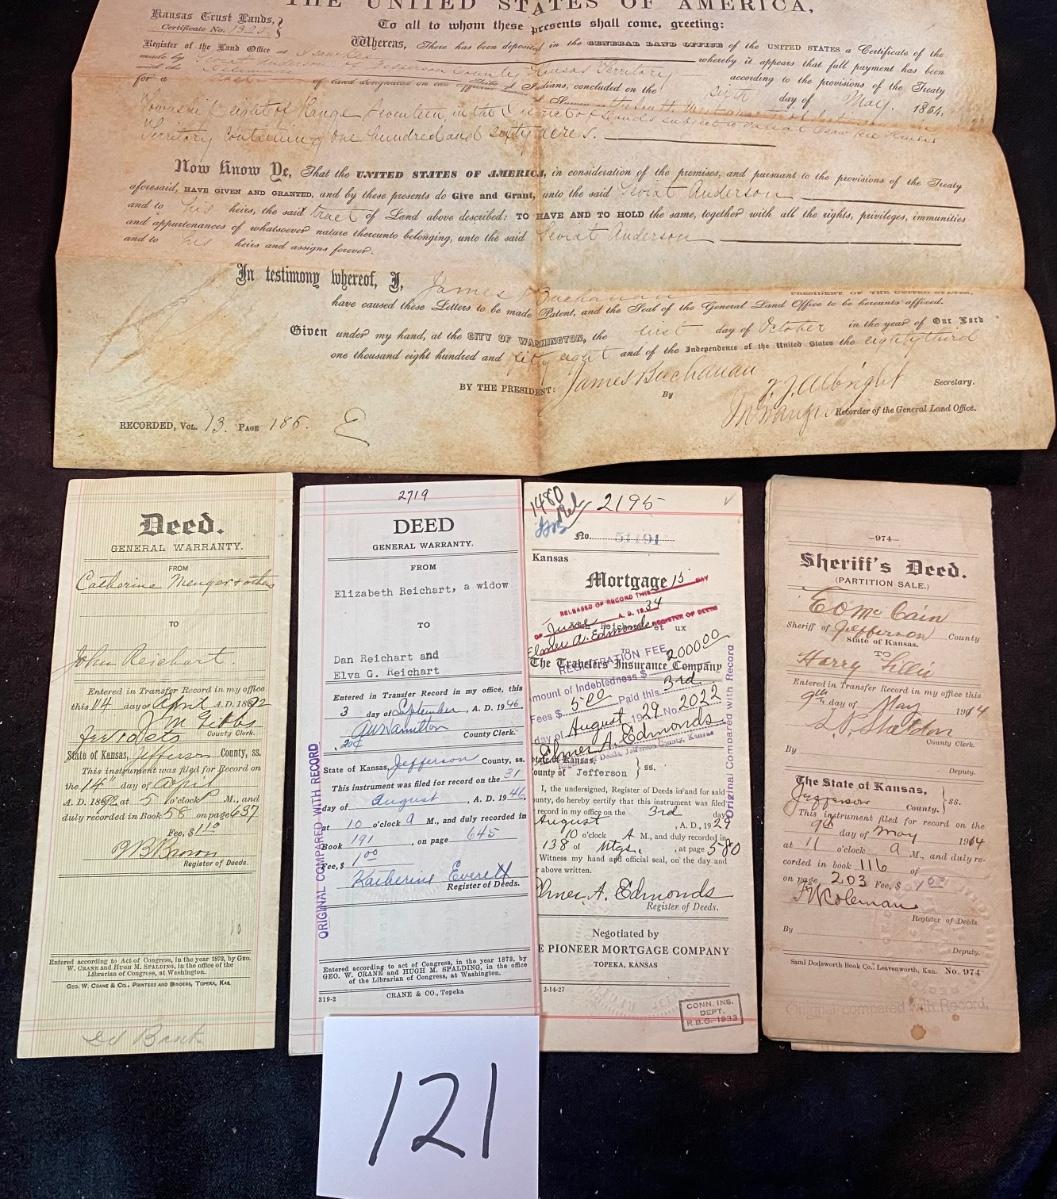 THE UNITED STATES OF AMERICA,
Kansas Trust Lands,
Certificate No. 1925
To all to whom these presents shall come, greeting:
Register of the Land Office at
Whereas, There has been deposited in the GENERAL LAND OFFICE of the UNITED STATES a Certificate of the
County, Kansas Territory whereby it appears that full payment has been
made by
according to the provisions of the Treaty
for a of land
of Indians, concluded on the sixth day of May, 1854,
Township eight of Range Seventeen, in the District of Lands subject to sale at
Territory Containing one hundred and sixty acres.
Now Know Ye, That the UNITED STATES OF AMERICA, in consideration of the premises, and pursuant to the provisions of the Treaty
aforesaid, HAVE GIVEN AND GRANTED, and by these presents do Give and Grant, unto the said Anderson
and to his heirs, the said tract of Land above described: TO HAVE AND TO HOLD the same, together with all the rights, privileges, immunities
and appurtenances of whatsoever nature thereunto belonging, unto the said Anderson
and to his heirs and assigns forever.
In testimony whereof, I, James Buchanan PRESIDENT OF THE UNITED STATES,
have caused these Letters to be made Patent, and the Seal of the General Land Office to be hereunto affixed.
Given under my hand, at the CITY OF WASHINGTON, the first day of October in the year of Our Lord
one thousand eight hundred and fifty eight and of the Independence of the United States the eighty third
BY THE PRESIDENT: James Buchanan
By Albright Secretary.
Recorder of the General Land Office.
RECORDED, VOL. 13. PAGE 186.
Deed.
GENERAL WARRANTY.
FROM
Catherine Menger & others
TO
John Reichart.
Entered in Transfer Record in my office
this 14 day of April A.D. 1892
J M Gibbs
County Clerk.
State of Kansas, Jefferson County, ss.
This instrument was filed for Record on
the 14th day of April
A. D. 1892 at 5 o'clock P M., and
duly recorded in Book 58 on page 637
Fee, $1.10
Brown
Register of Deeds.
Entered according to Act of Congress, in the year 1873, by Geo.
W. CRANE and HUGH M. SPALDING, in the office of the
Librarian of Congress, at Washington.
GEO. W. CRANE & CO., PRINTERS AND BINDERS, TOPEKA, KAS.
Bank
2719
DEED
GENERAL WARRANTY.
FROM
Elizabeth Reichart, a widow
TO
Dan Reichart and
Elva G. Reichart
Entered in Transfer Record in my office, this
3 day of September, A. D. 1946
Hamilton
County Clerk.
State of Kansas, Jefferson County, ss.
This instrument was filed for record on the 31
day of August, A. D. 1946,
at 10 o'clock A M., and duly recorded in
Book 191, on page 645
Fee, $1.00
Katherine Everett
Register of Deeds.
ORIGINAL COMPARED WITH RECORD
Entered according to act of Congress, in the year 1873, by
GEO. W. CRANE and HUGH M. SPALDING, in the office
of the Librarian of Congress, at Washington.
319-2 CRANE & CO., Topeka
1480
Rel
2195
No. 51491
Kansas
Mortgage
15 DAY
RELEASED OF RECORD THIS
OF June A. D. 1934
Elmer A. Edmonds REGISTER OF DEEDS
et ux
TO
The Travelers Insurance Company
REGISTRATION FEE
Amount of Indebtedness $ 2000.00
Fees $ 5.00 Paid this 3rd
day of August 1929 No. 2022
Elmer A. Edmonds
Register of Deeds, Jefferson County, Kansas
State of Kansas,
County of Jefferson ss.
I, the undersigned, Register of Deeds in and for said
county, do hereby certify that this instrument was filed
record in my office on the 3rd day
August, A. D., 1929
10 o'clock A M., and duly recorded
138 of Mtgs., at page 580
Witness my hand and official seal, on the day and
above written.
Elmer A. Edmonds
Register of Deeds.
Original Compared with Record
Negotiated by
THE PIONEER MORTGAGE COMPANY
TOPEKA, KANSAS
3-14-27
CONN. INS.
DEPT.
R.B.G. 1933
—974—
Sheriff's Deed.
(PARTITION SALE.)
E O McCain
Sheriff of Jefferson County
State of Kansas.
TO
Harry
Entered in Transfer Record in my office this
9th day of May 1914
County Clerk.
By
Deputy.
The State of Kansas,
Jefferson County. ss.
This instrument filed for record on the
9th day of May 1914
at 11 o'clock A M., and duly re-
corded in book 116 of
on page 203 Fee, $
Coleman
Register of Deeds
By
Deputy.
Saml Dodsworth Book Co., Leavenworth, Kan. No. 974
Original compared with Record.
121